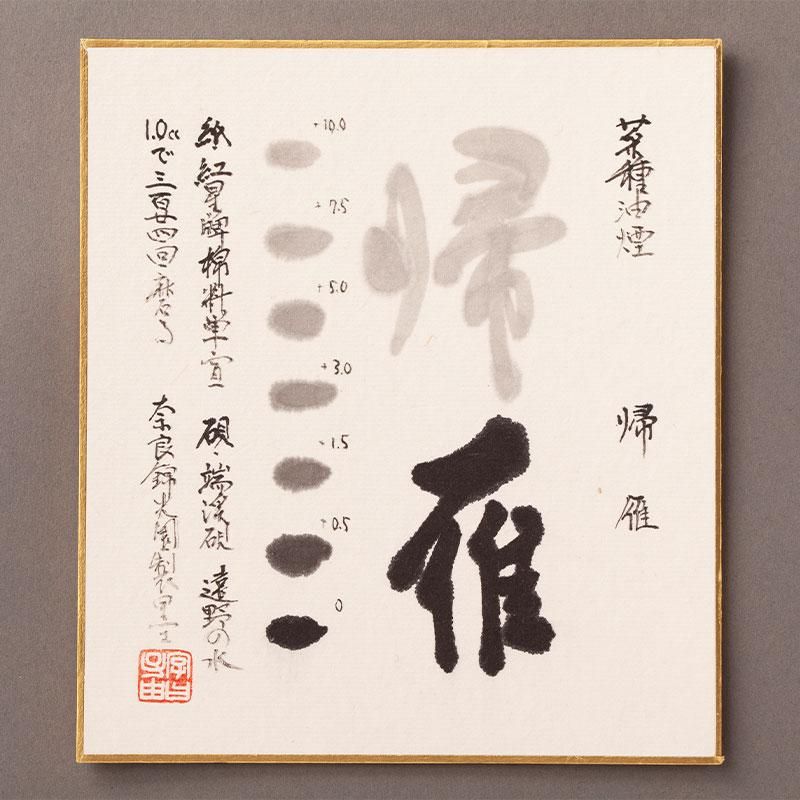 菜種油煙 帰雁
帰雁
+10.0
+7.5
+5.0
+3.0
+1.5
+0.5
0
紙、紅星牌棉料単宣 硯、端渓硯 遠野の水
1.0ccで三百廿四回磨る 奈良錦光園制